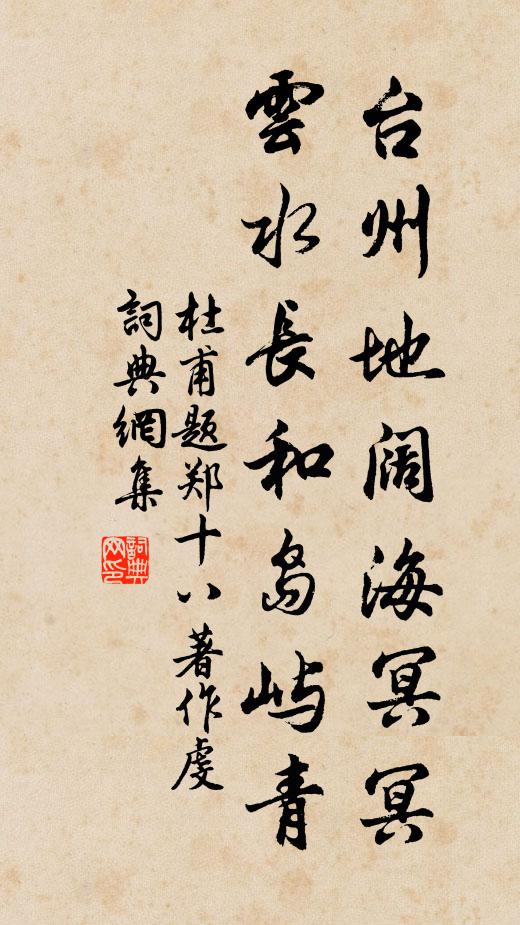 台州地阔海冥冥
雲水長和岛屿青
杜甫題郑十八著作虔
詞典網集
詞典
网印